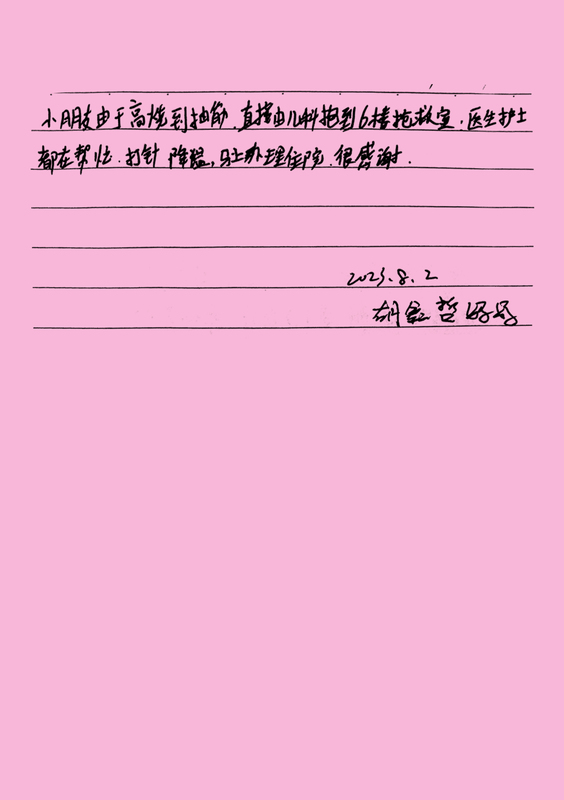 小朋友由于高烧到抽筋.直接由儿科抱到6楼抢救室.医生护士
都在帮忙.打针 降温,马上办理住院.很感谢.
2023.8.2
胡 哲妈妈